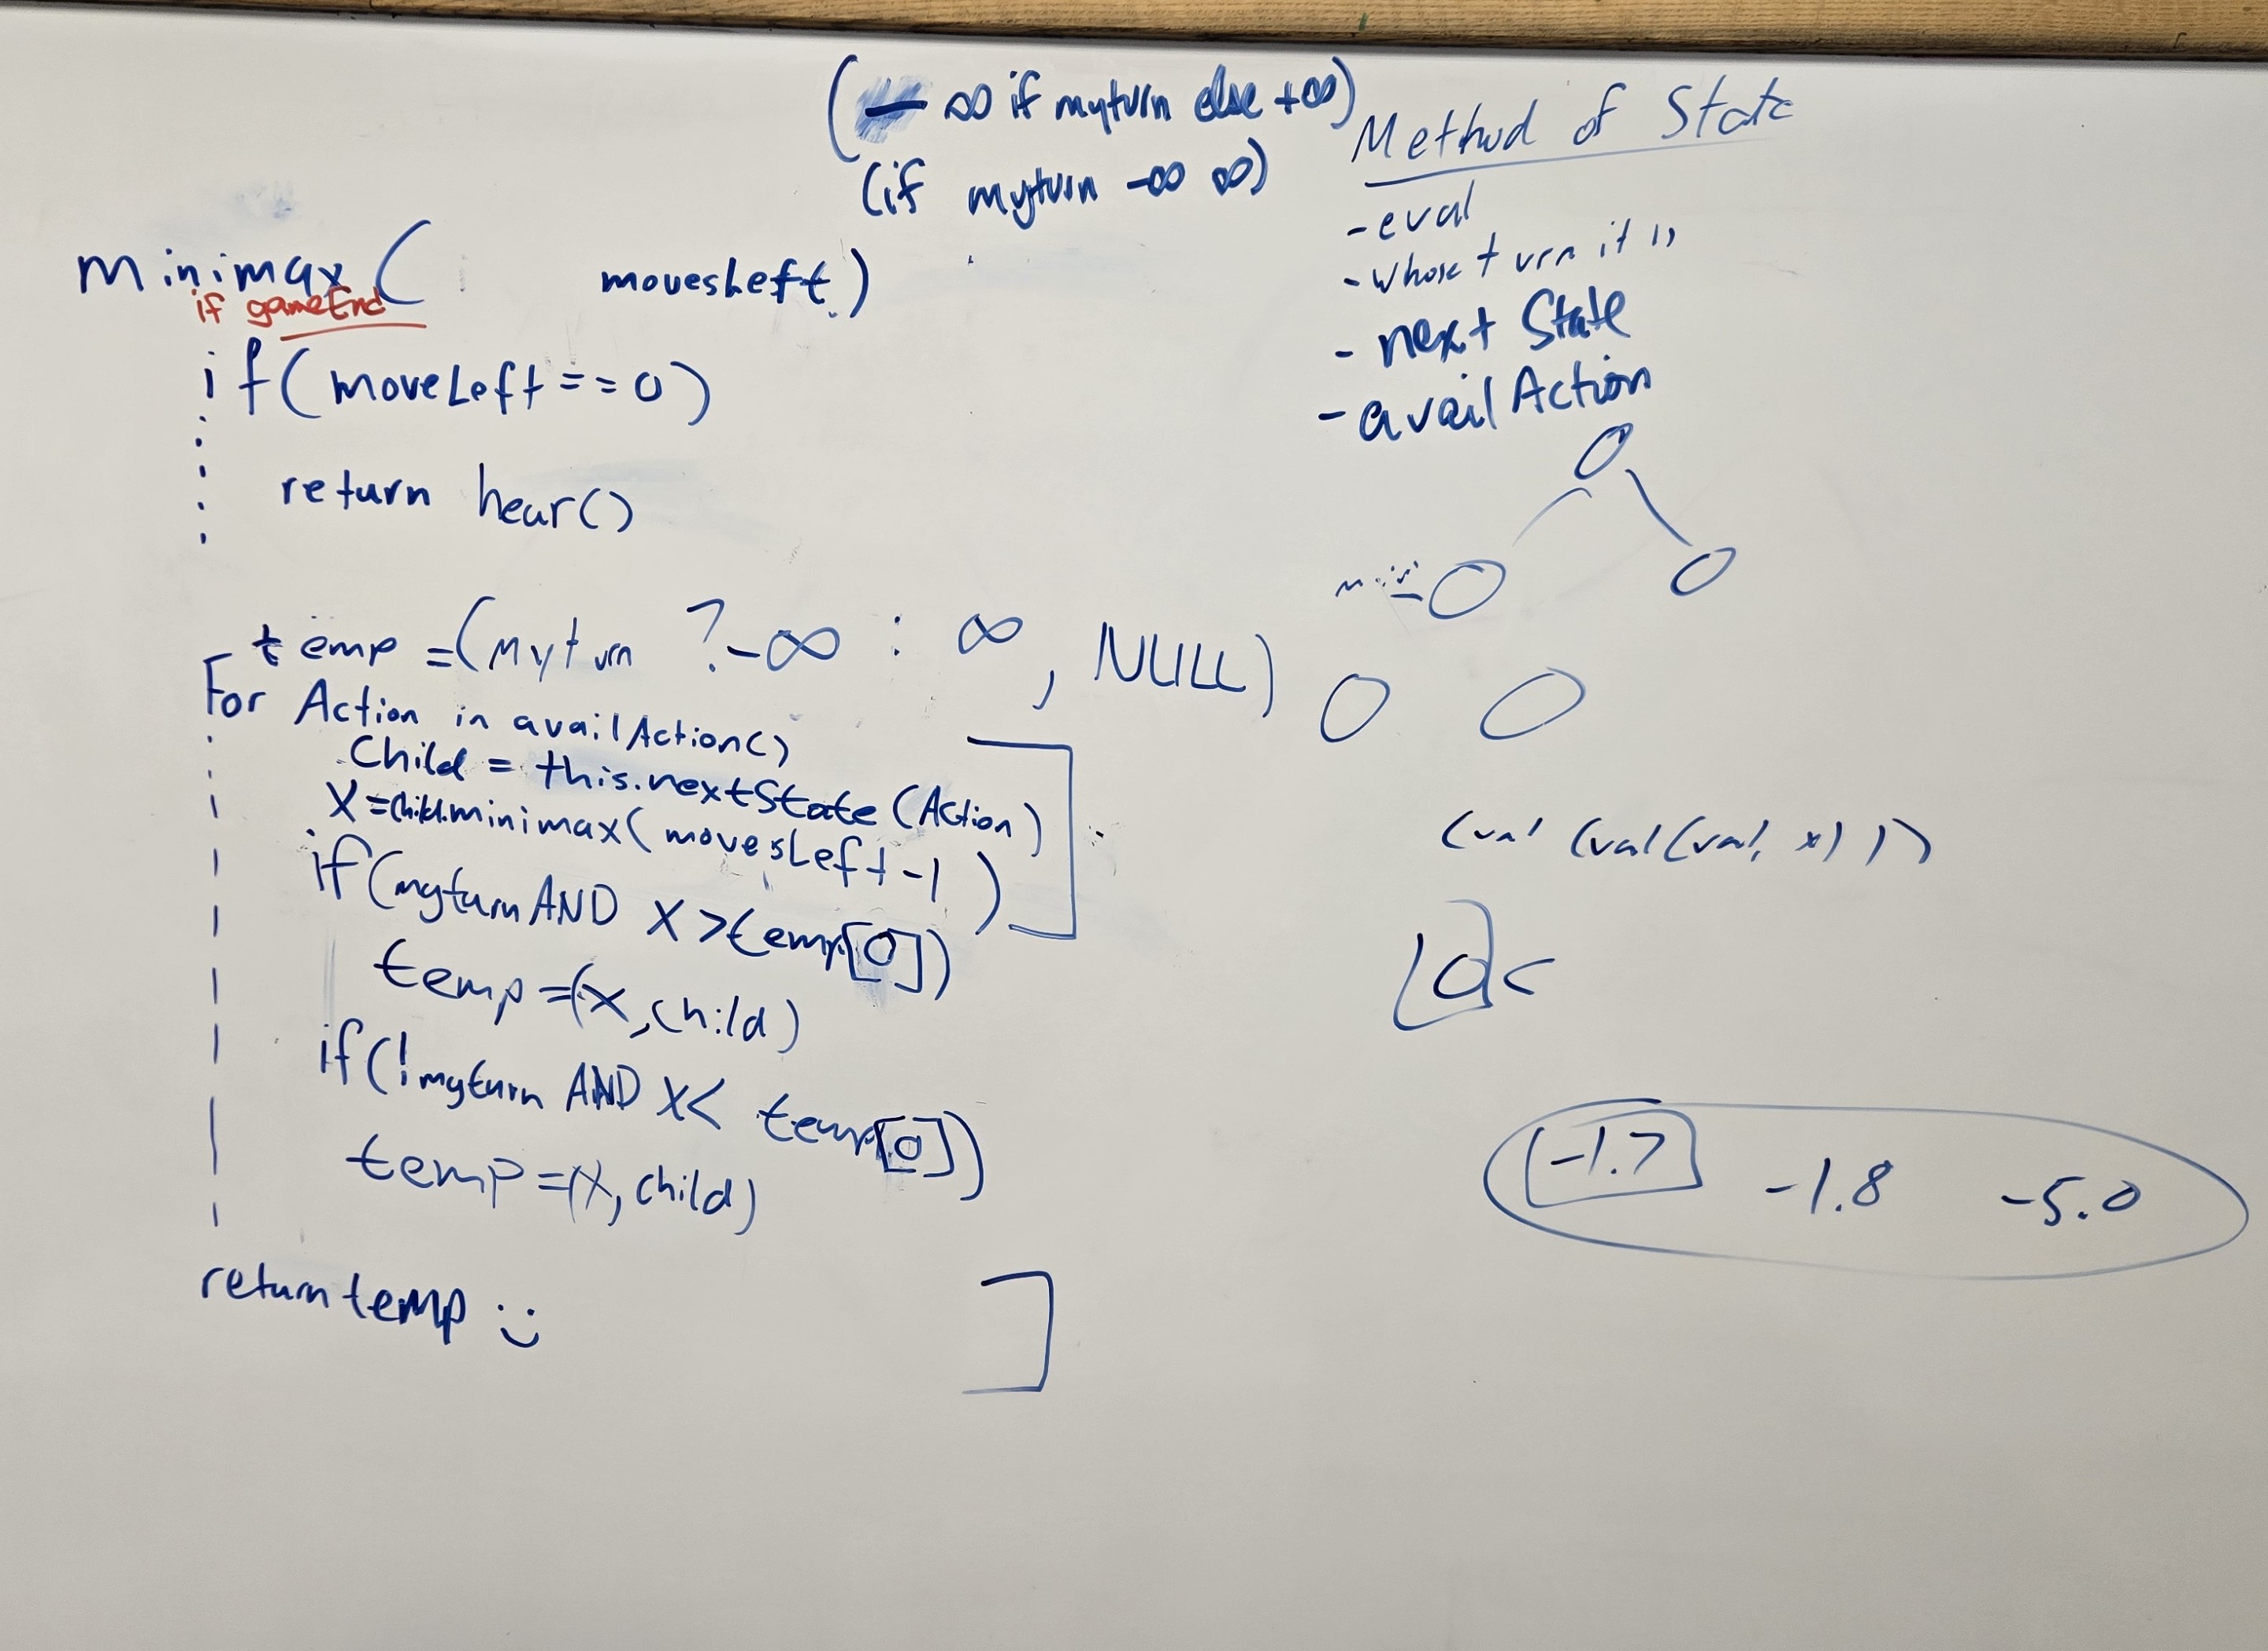 (- ∞ if myturn else +∞)
(if myturn -∞ ∞)
minimax( movesLeft)
if gameEnd
if(moveLeft==0)
return hear()
temp =(myturn ?-∞ : ∞, NULL)
For Action in availAction()
Child = this.nextState(Action)
X=Child.minimax(movesLeft-1)
if(myturn AND X>temp[0])
temp=(x,child)
if(!myturn AND X< temp[0])
temp=(X,child)
return temp :)
Method of State
-eval
-whose turn it is
- next State
-availAction
(val (val(val, x)))
-1.7 -1.8 -5.0